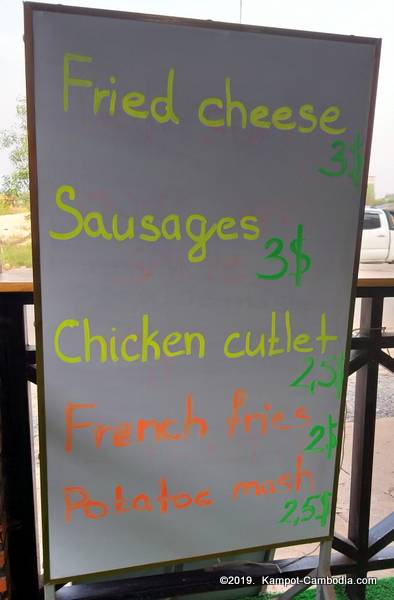 Fried cheese
3$
Sausages
3$
Chicken cutlet
2,5$
French fries
2$
Potatoe mash
2,5$
©2019. Kampot-Cambodia.com